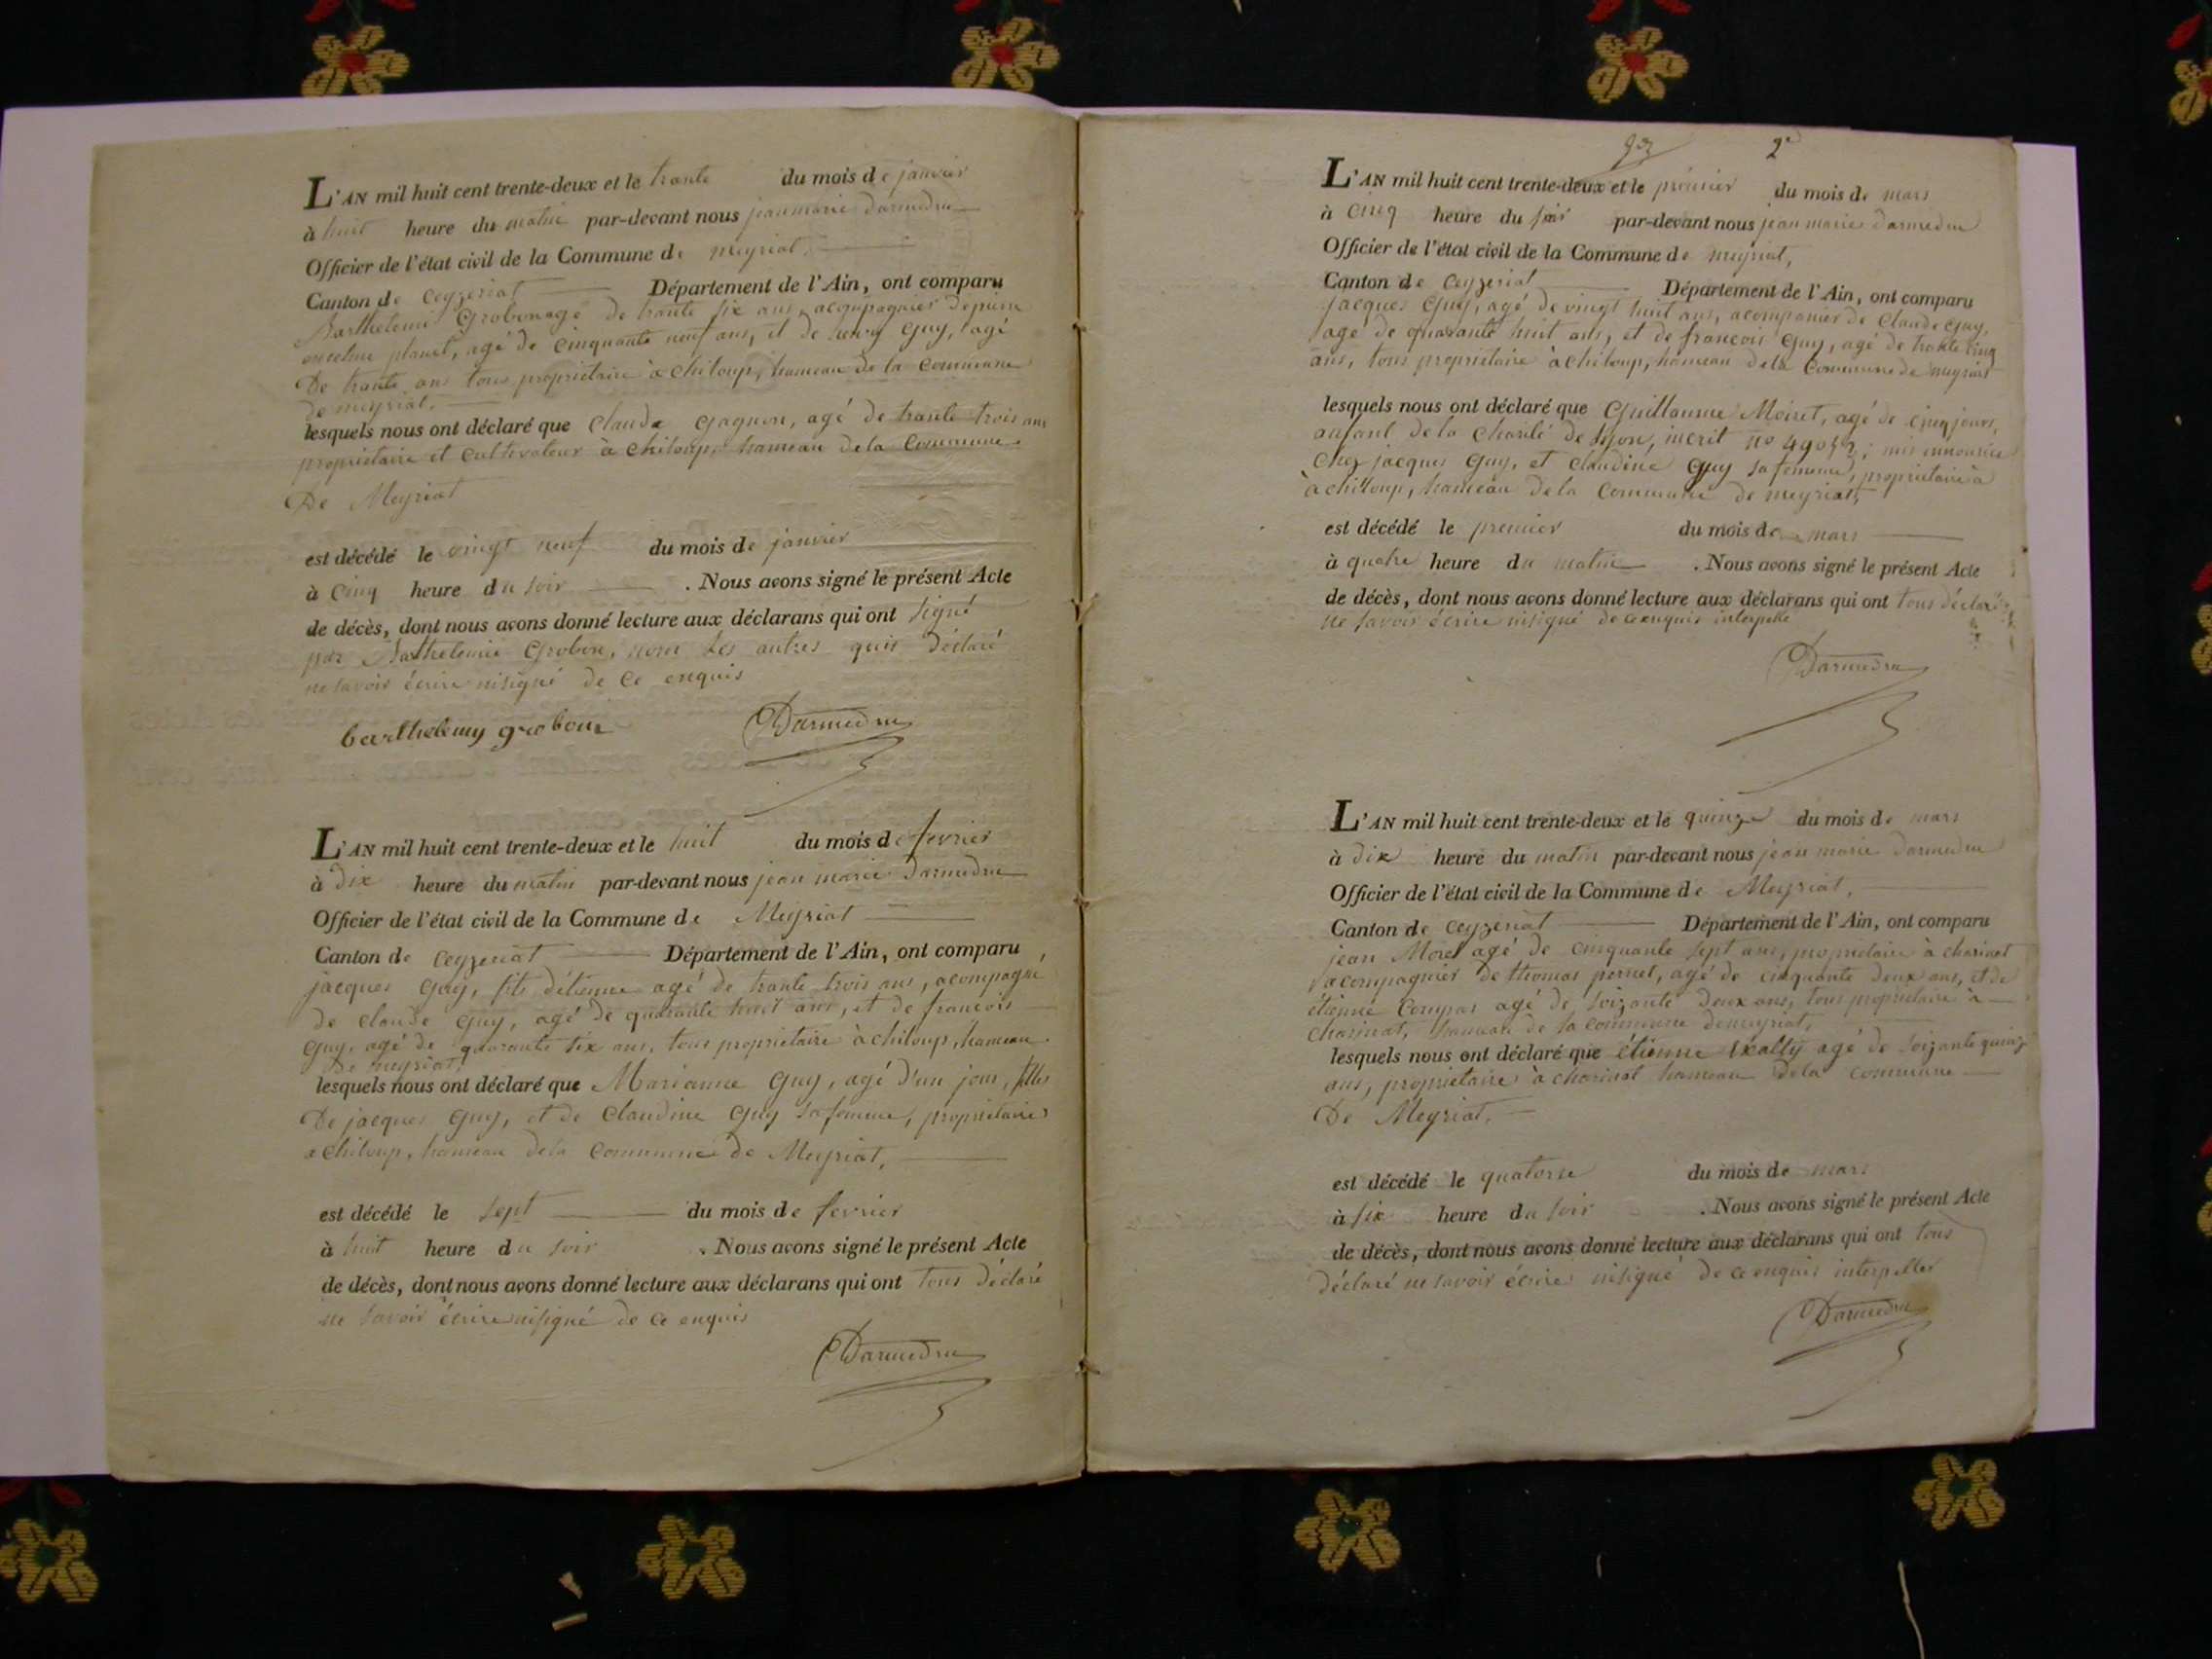 L'AN mil huit cent trente-deux et le trante du mois de janvier
à huit heure du matin par-devant nous jean marie darmedru
Officier de l'état civil de la Commune de meyriat,
Canton de ceyzeriat Département de l'Ain, ont comparu
Barthelemi Grobon agé de trante six ans, acompagnier de pierre
planet, agé de cinquante neuf ans, et de guy, agé
De trante ans tous propriétaire à chiloup, hameau de la commune
de meyriat.
lesquels nous ont déclaré que Claude gagneur, agé de trante trois ans
propriétaire et cultivateur à chiloup, hameau dela Commune
De Meyriat
est décédé le vingt neuf du mois de janvier
à cinq heure du soir . Nous avons signé le présent Acte
de décès, dont nous avons donné lecture aux déclarans qui ont signé
par Barthelemi Grobon, non les autres quis déclaré
ne savoir écrire nisigné de ce enquis
barthelemy grobon Darmedru
L'AN mil huit cent trente-deux et le huit du mois de fevrier
à dix heure du matin par-devant nous jean marie Darmedru
Officier de l'état civil de la Commune de Meyriat
Canton de ceyzeriat Département de l'Ain, ont comparu
jacques guy, fils d'étienne agé de trante trois ans, acompagné
de claude guy, agé de quarante huit ans, et de francois
guy, agé de quarante six ans, tous propriétaire à chiloup, hameau
De meyriat,
lesquels nous ont déclaré que Marianne guy, agé d'un jour, filles
De jacques guy, et de Claudine guy sa femme, propriétaires
a chiloup, hameau dela Commune de Meyriat,
est décédé le sept du mois de fevrier
à huit heure du soir . Nous avons signé le présent Acte
de décès, dont nous avons donné lecture aux déclarans qui ont tous déclaré
ne savoir écrire nisigné de ce enquis
Darmedru
2e
L'AN mil huit cent trente-deux et le premier du mois de mars
à cinq heure du soir par-devant nous jean marie darmedru
Officier de l'état civil de la Commune de meyriat,
Canton de ceyzeriat Département de l'Ain, ont comparu
jacques guy, agé de vingt huit ans, acompanier de Claude guy,
agé de quarante huit ans, et de francois guy, agé de trante cinq
ans, tous propriétaire à chiloup, hameau dela Commune de meyriat
lesquels nous ont déclaré que Guillaume Moiret, agé de cinq jours,
anfant dela charité de lyon, incrit no 49052; mis ennourice
chez jacques guy, et claudine guy sa femme, propriétaire à
à chiloup, hameau dela Commune de meyriat,
est décédé le premier du mois de mars
à quatre heure du matin . Nous avons signé le présent Acte
de décès, dont nous avons donné lecture aux déclarans qui ont tous déclaré
ne savoir écrire nisigné de ce enquis interpellé
Darmedru
L'AN mil huit cent trente-deux et le quinze du mois de mars
à dix heure du matin par-devant nous jean marie darmedru
Officier de l'état civil de la Commune de Meyriat,
Canton de ceyzeriat Département de l'Ain, ont comparu
jean Morel agé de cinquante sept ans, propriétaire à charinat
acompagnier de thomas pernet, agé de cinquante deux ans, et de
étienne agé de soizante deux ans, tous propriétaire à
charinat, hameau de la commune demeyriat,
lesquels nous ont déclaré que étienne agé de soizante quinze
ans, propriétaire à charinat hameau dela commune
De Meyriat,
est décédé le quatorze du mois de mars
à six heure du soir . Nous avons signé le présent Acte
de décès, dont nous avons donné lecture aux déclarans qui ont tous
déclaré ne savoir écrire nisigné de ce enquis interpeller
Darmedru